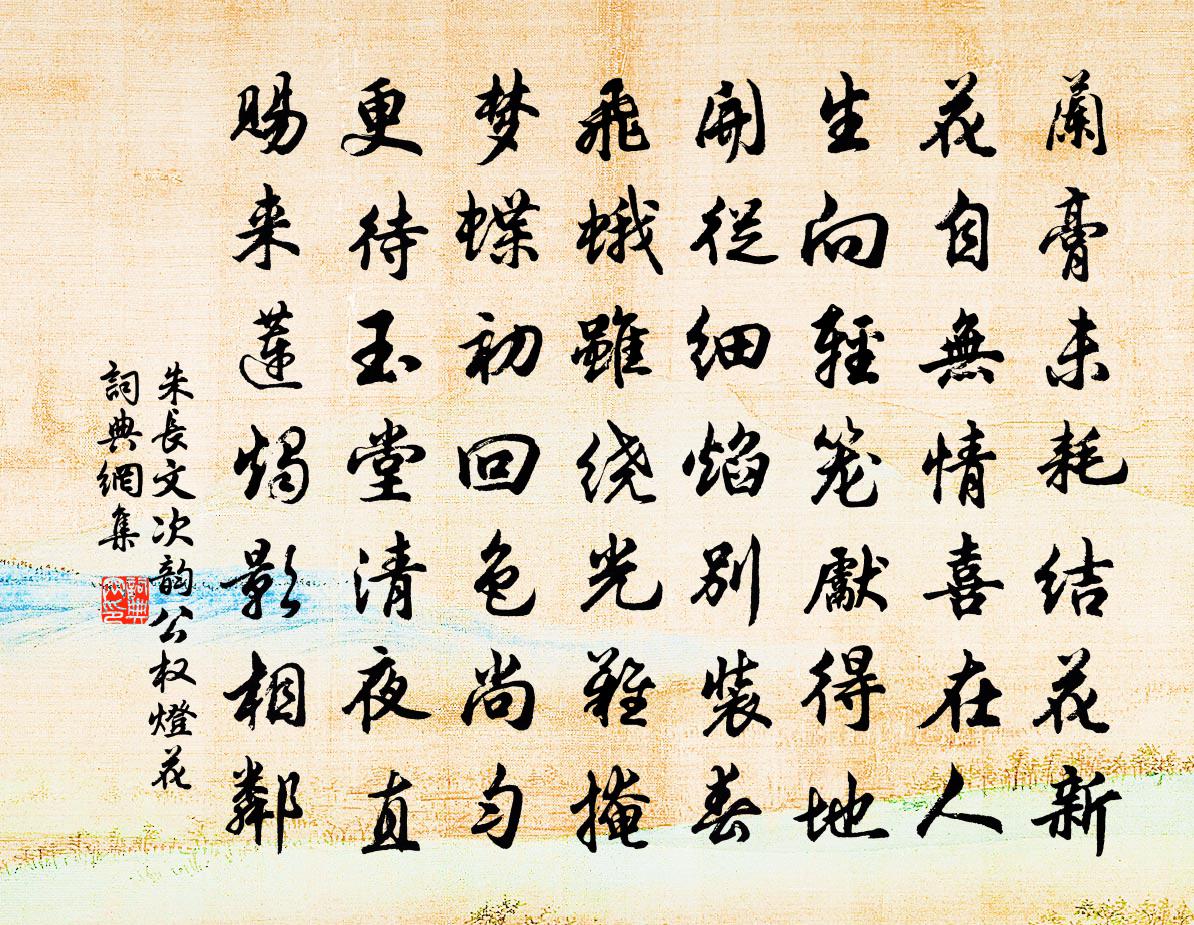 蘭膏未耗结花新
花自無情喜在人
生向輕笼獻得地
開從细焰别裝春
飛蛾雖绕光難掩
梦蝶初回色尚匀
更待玉堂清夜直
賜来蓮燭影相鄰
朱長文次韵公权燈花
詞典網集